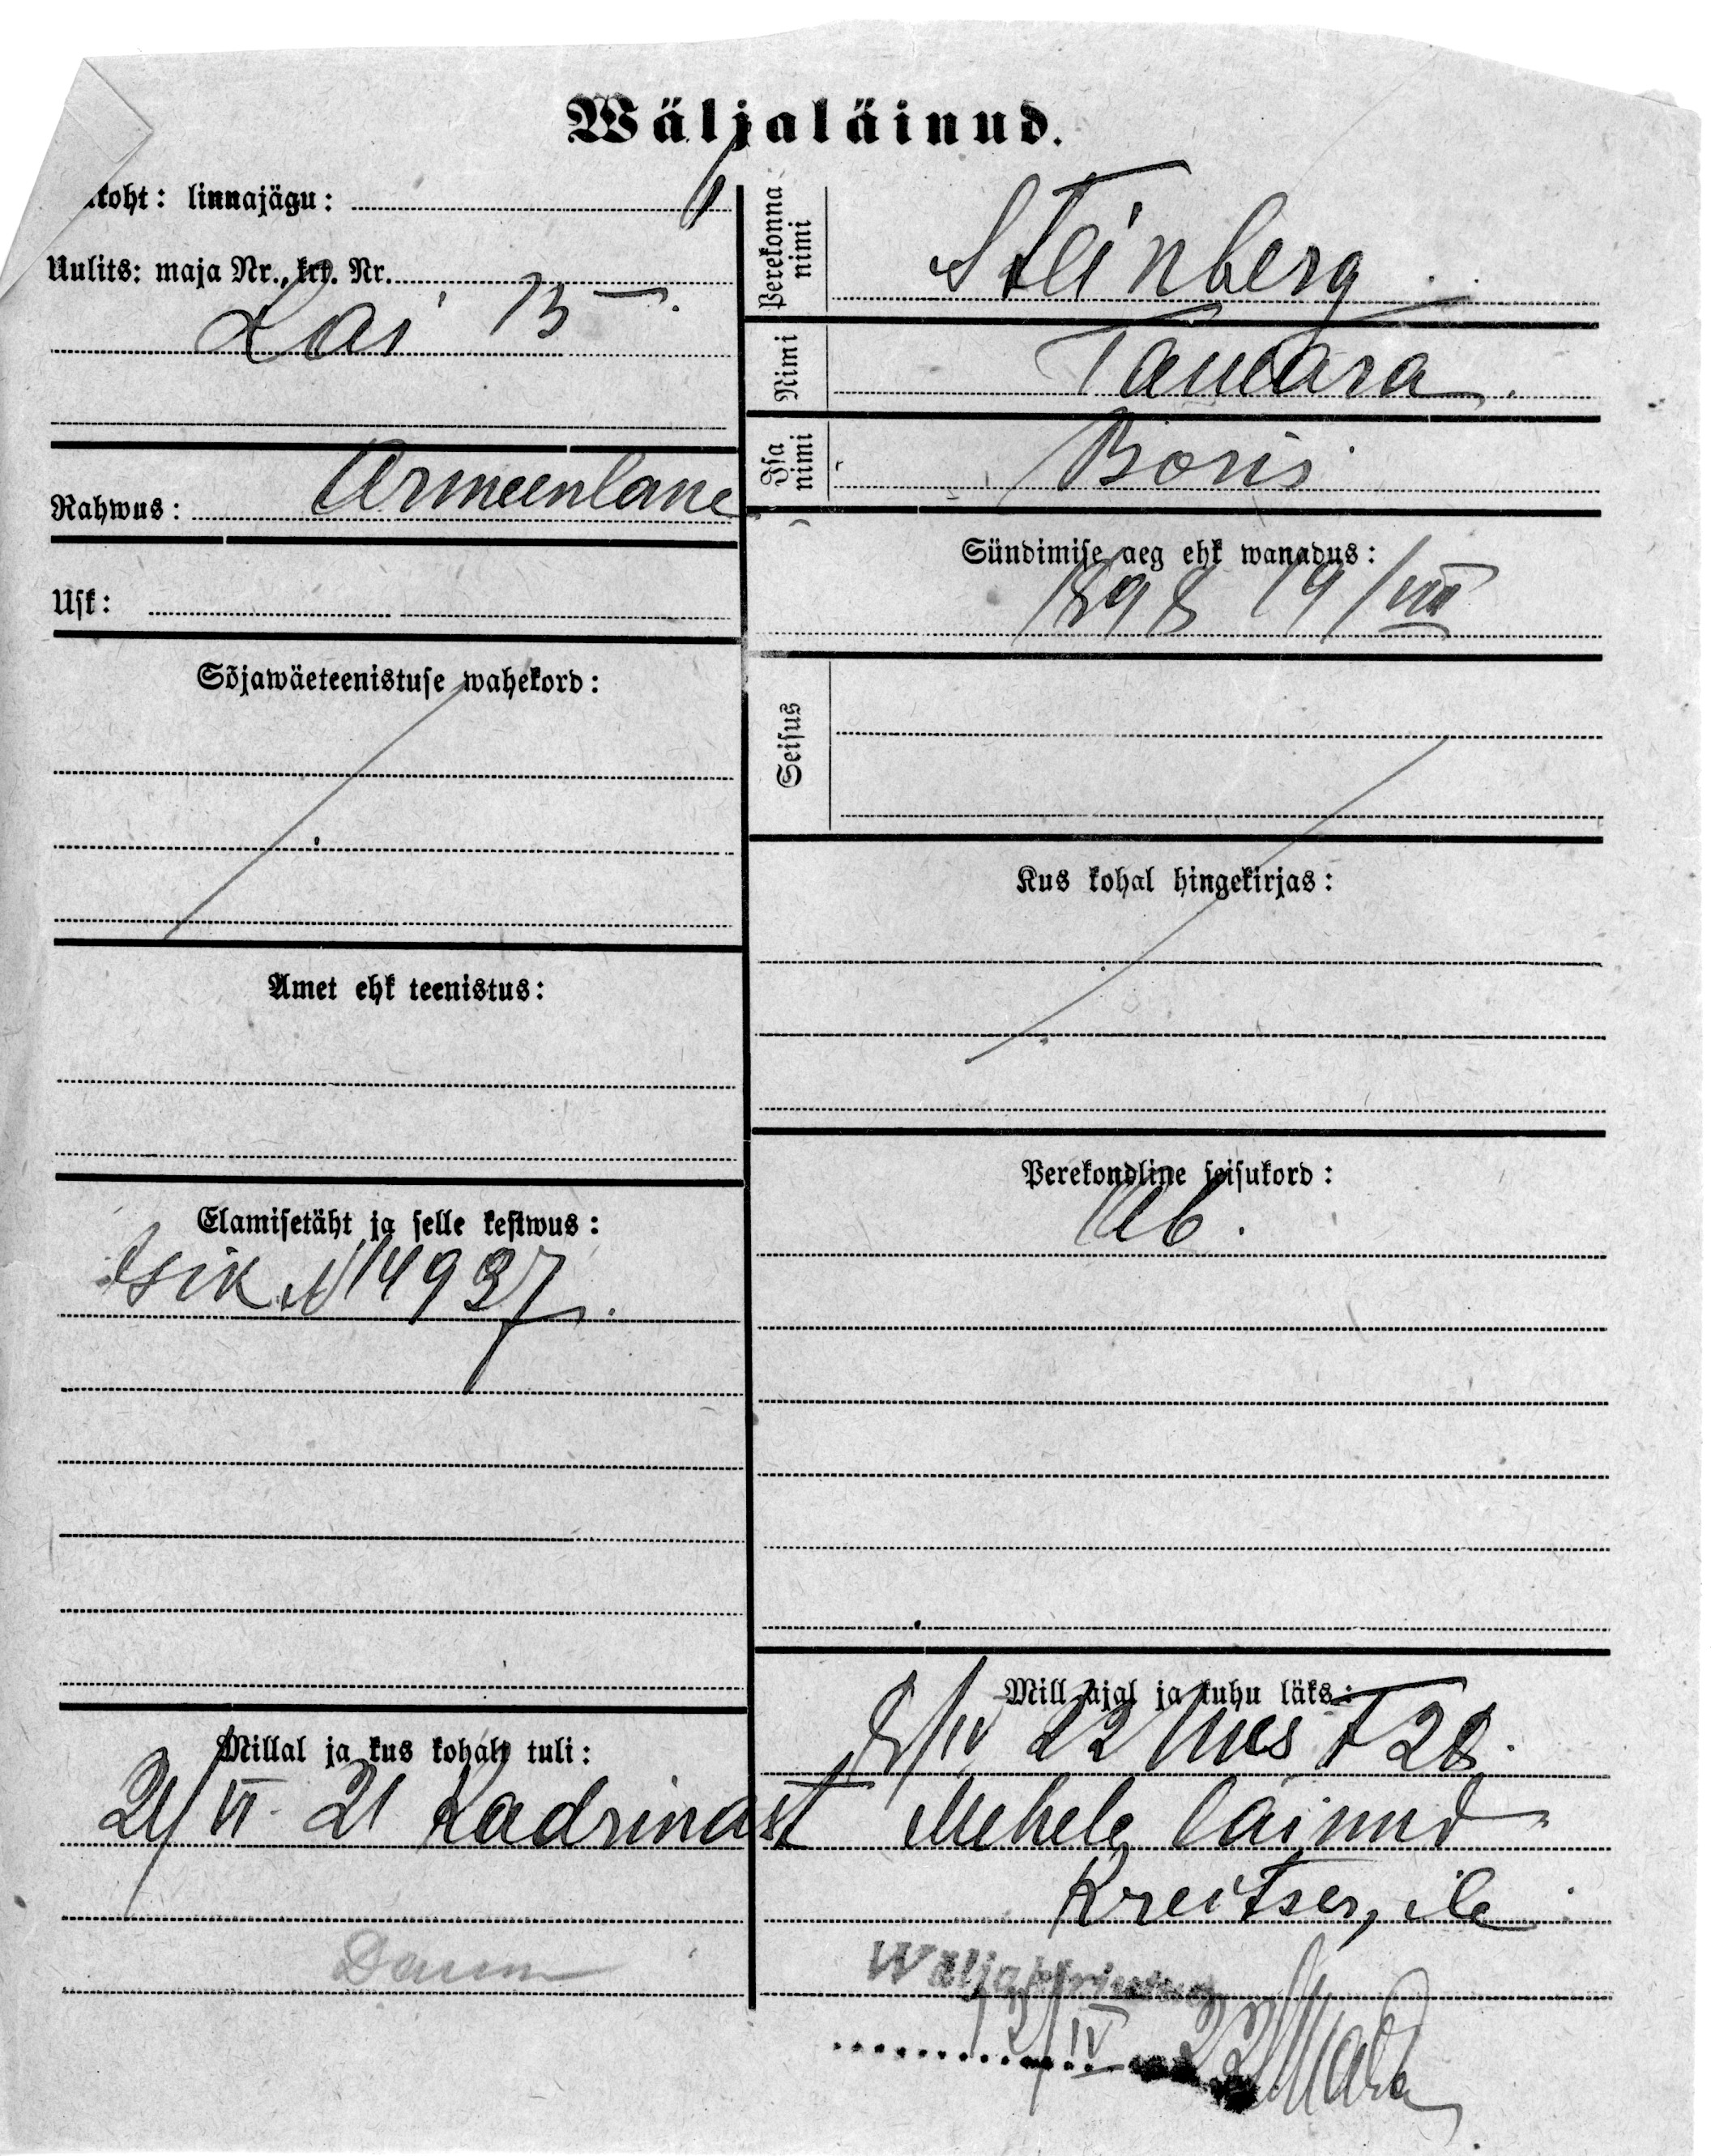 Wäljaläinud.
koht: linnajägu: 1
Uulits: maja Nr., krt. Nr.
Lai 13 —.
Rahwus: Armeenlane
Usk:
Sõjawäeteenistuse wahekord:
Amet ehk teenistus:
Elamisetäht ja selle kestwus:
Isik N 14937.
Millal ja kus kohalt tuli:
21/VI 21 Kadrinast
Perekonna nimi
Steinberg
Nimi
Tamara.
Isa nimi
Boris
Sündimise aeg ehk wanadus:
1898 19/VIII
Seisus
Kus kohal hingekirjas:
Perekondline seisukord:
Ab.
Mill ajal ja kuhu läks:
8/IV 22 Uus T 28.
Mehele läinud
Kreitser, ile
Wäljakirjutud
12/IV 22